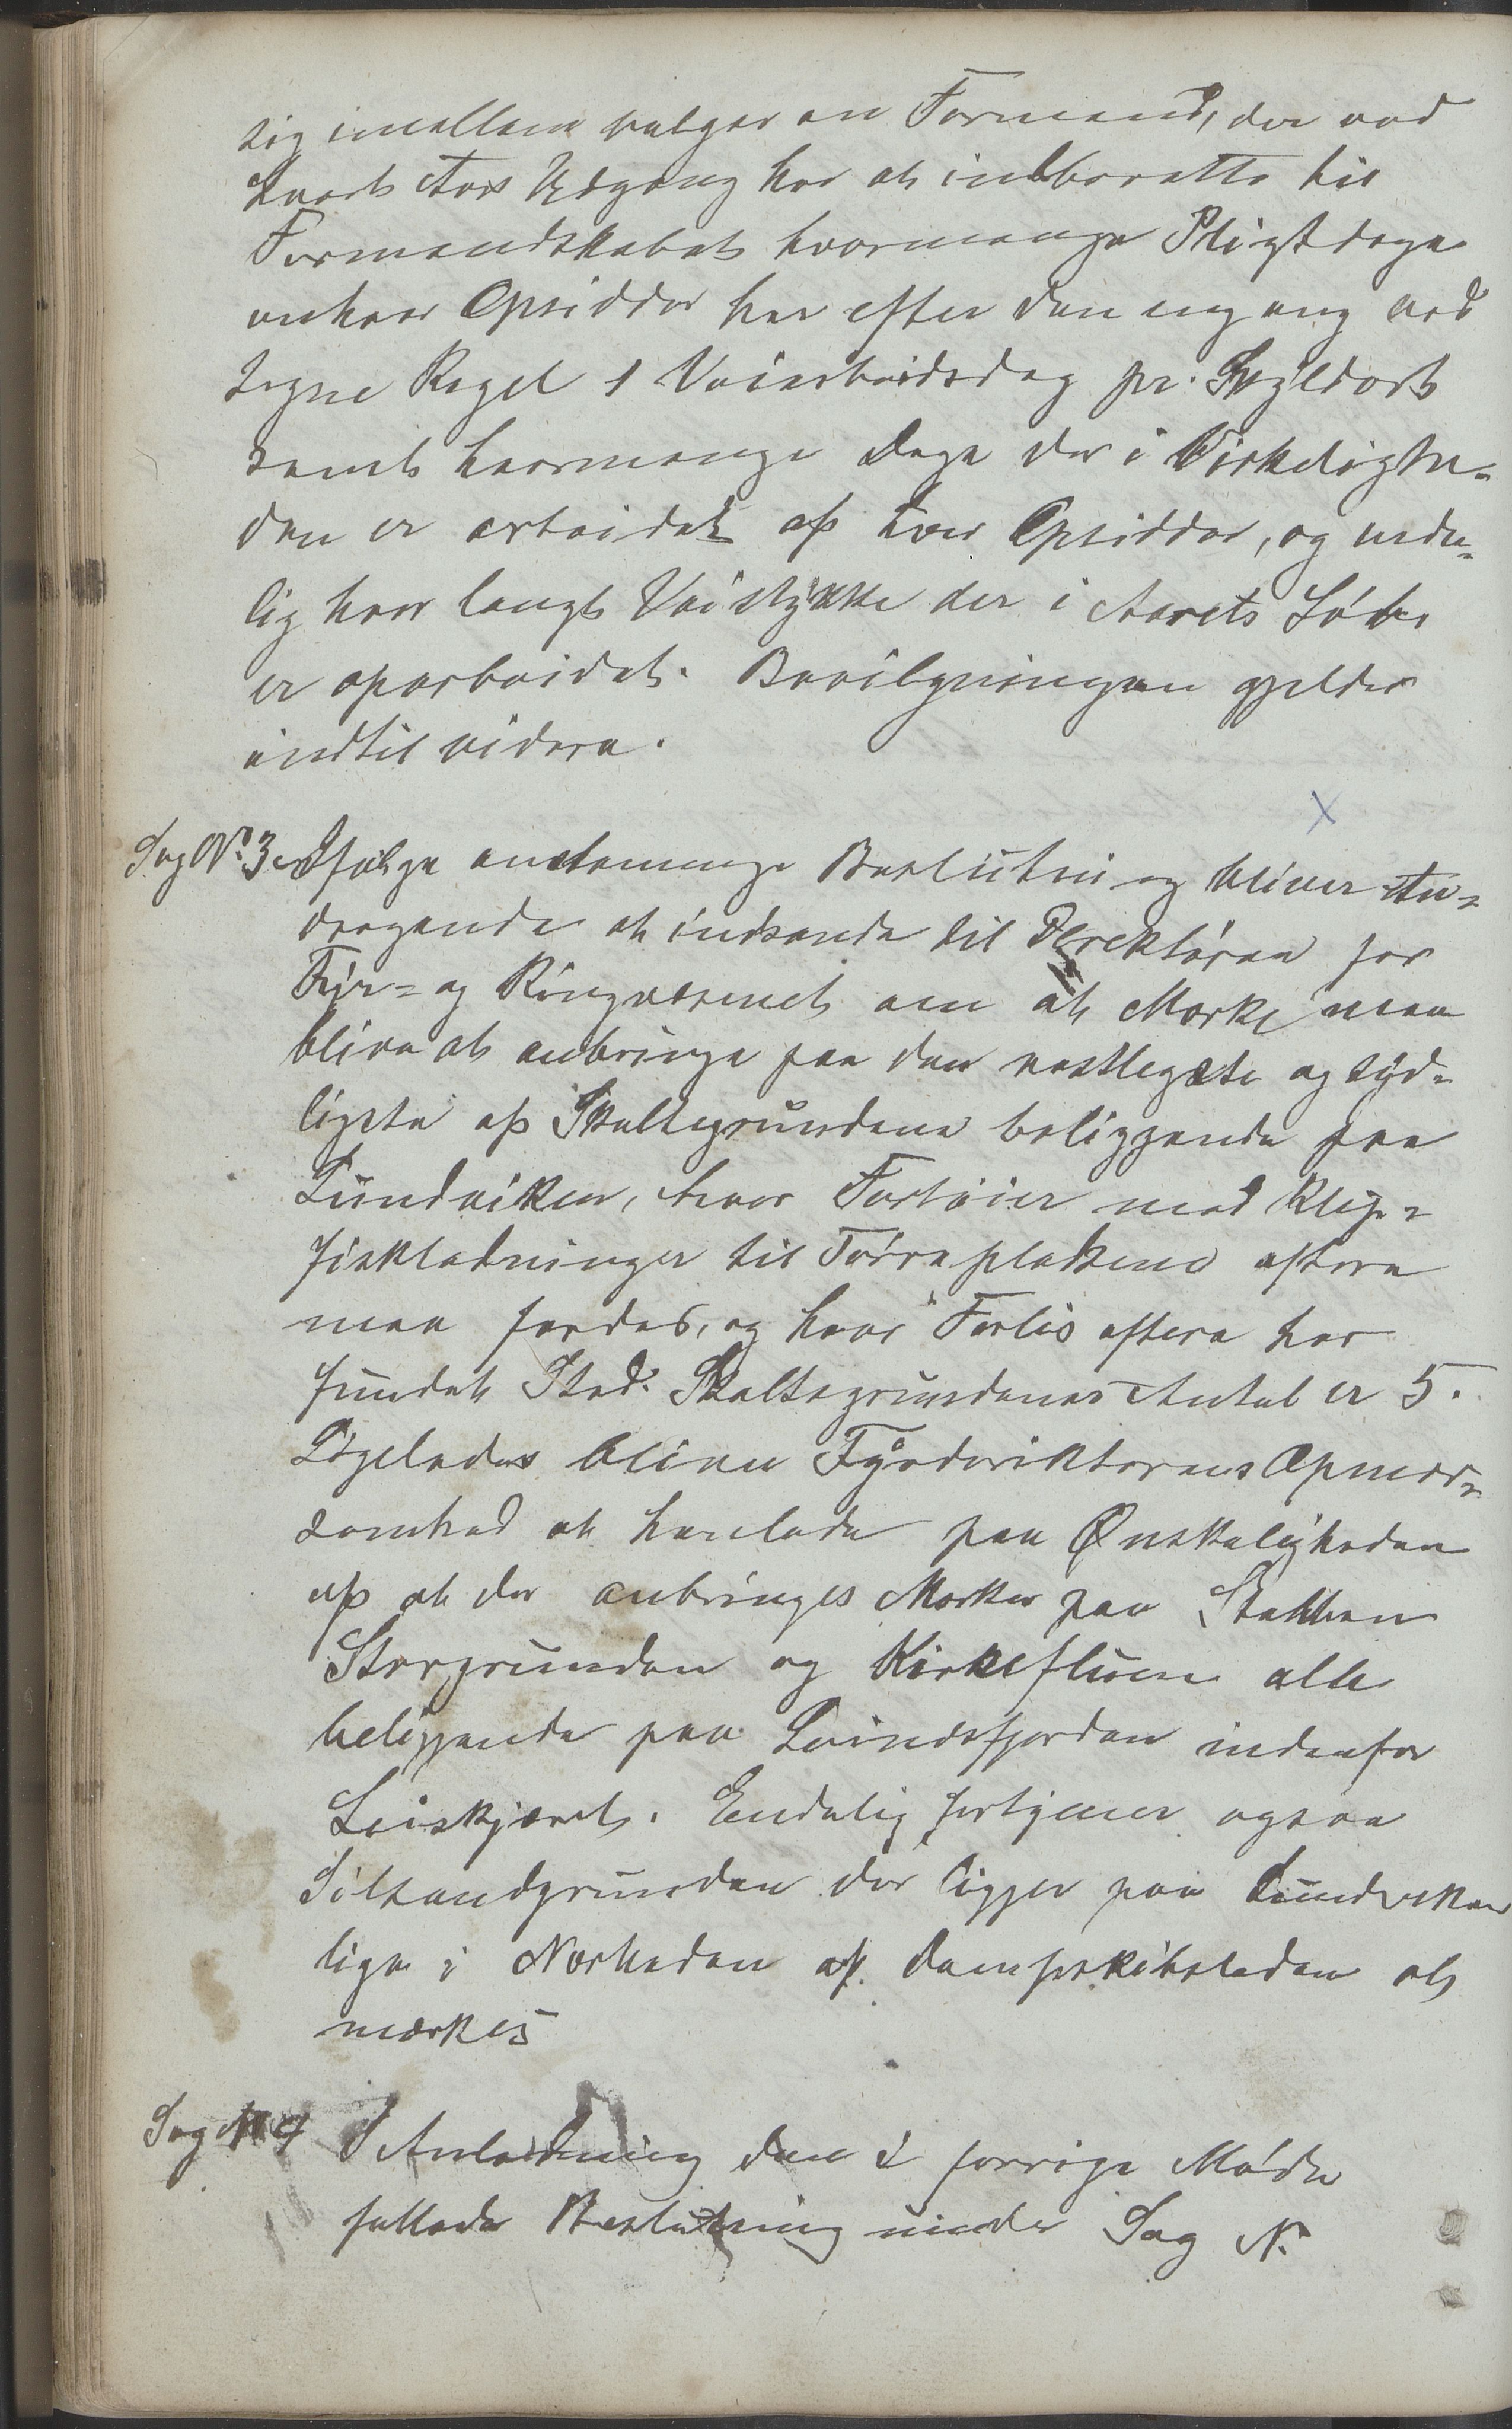 sig imellem vælger en Formand, der ved
hvert Aars Udgang har at indberette til
Formandskabet hvormange Pligtdage
enhver Opsidder har efter den engang ved
tagne Regel 1 Veiarbeidsdag pr. Skyldort
samt hvormange Dage der i Virkelighe-
den er arbeidet af hver Opsidder, og ende-
lig hvor langt Veistykke der i Aarets Løb
er oparbeidet. Bevilgningen gjelder
indtil videre.
Sag No. 3. Ifølge enstemmig Beslutning bliver An-
dragende at indsende til Direktøren for
Fyr- og Ringvæsenet om at Mærke maa
blive at anbringe paa den vestligste og syd-
ligste af Skaltegrundene beliggende paa
Sundviken, hvor Fartøier med Klip-
fiskladninger til Tørrepladsene oftere
maa færdes, og hvor Forlis oftere har
fundet Sted. Skaltegrundenes Antal er 5.
Ligeledes bliver Fyrdirektørens Opmær-
somhed at henlede paa Ønskeligheden
af at der anbringes Mærker paa Stabben
Storgrunden og Kirkefluen alle
beliggende paa indenfor
Endelig fortjener ogsaa
der ligger paa
lige i Nærheden af Dampskibsleden at
mærkes
Sag No 4 I Anledning den i forrige Møde
fattede Beslutning under Sag N.